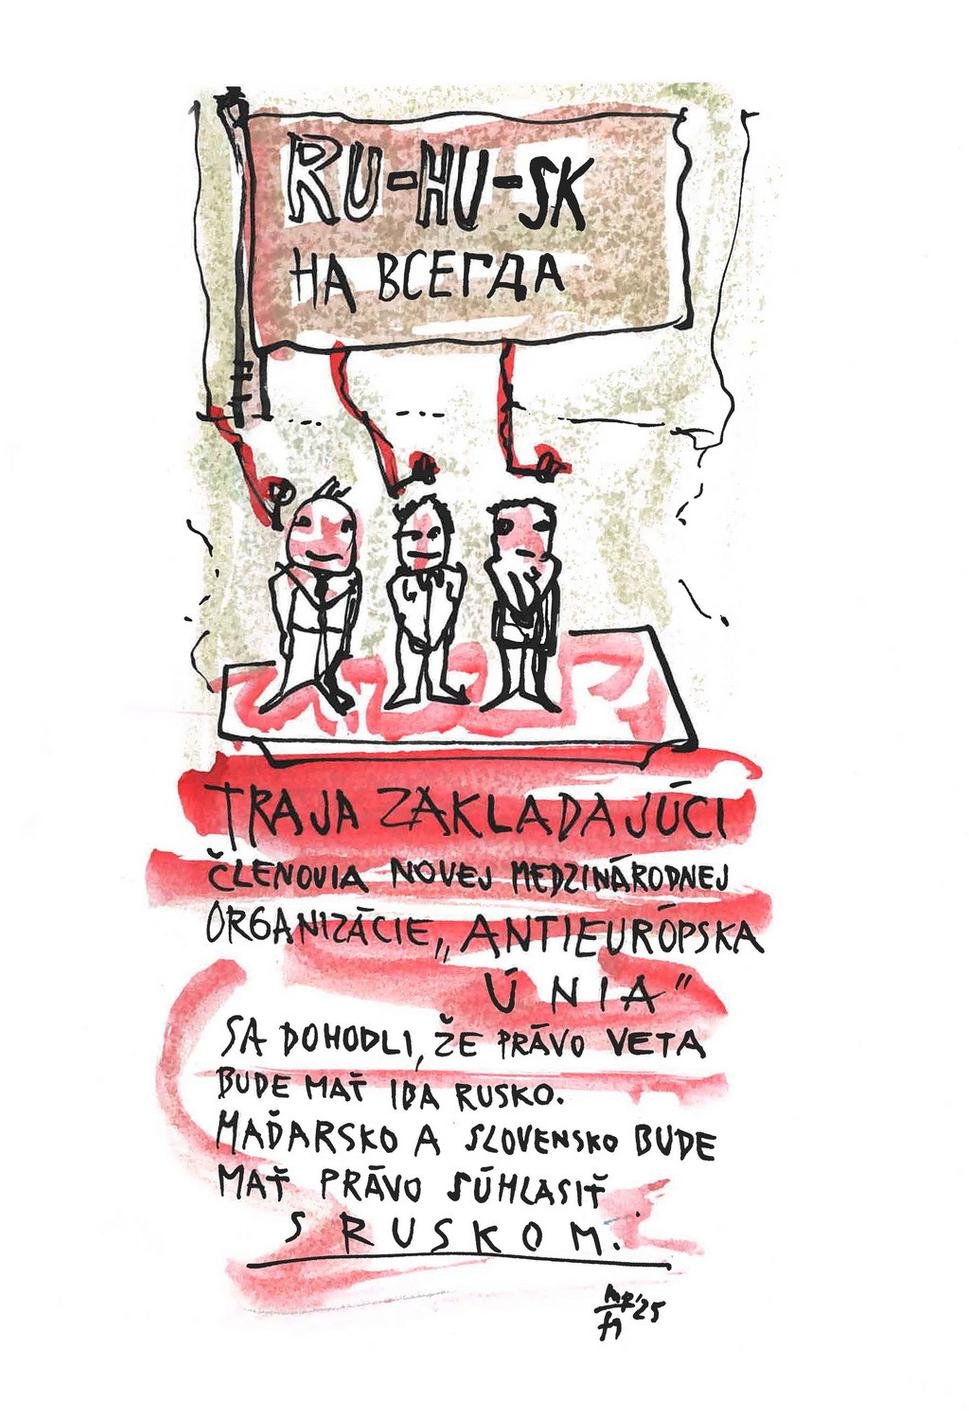 RU-HU-SK
НА ВСЕГДА
TRAJA ZAKLADAJÚCI
ČLENOVIA NOVEJ MEDZINÁRODNEJ
ORGANIZÁCIE „ANTIEURÓPSKA
ÚNIA"
SA DOHODLI, ŽE PRÁVO VETA
BUDE MAŤ IBA RUSKO.
MAĎARSKO A SLOVENSKO BUDE
MAŤ PRÁVO SÚHLASIŤ
S RUSKOM.
'25